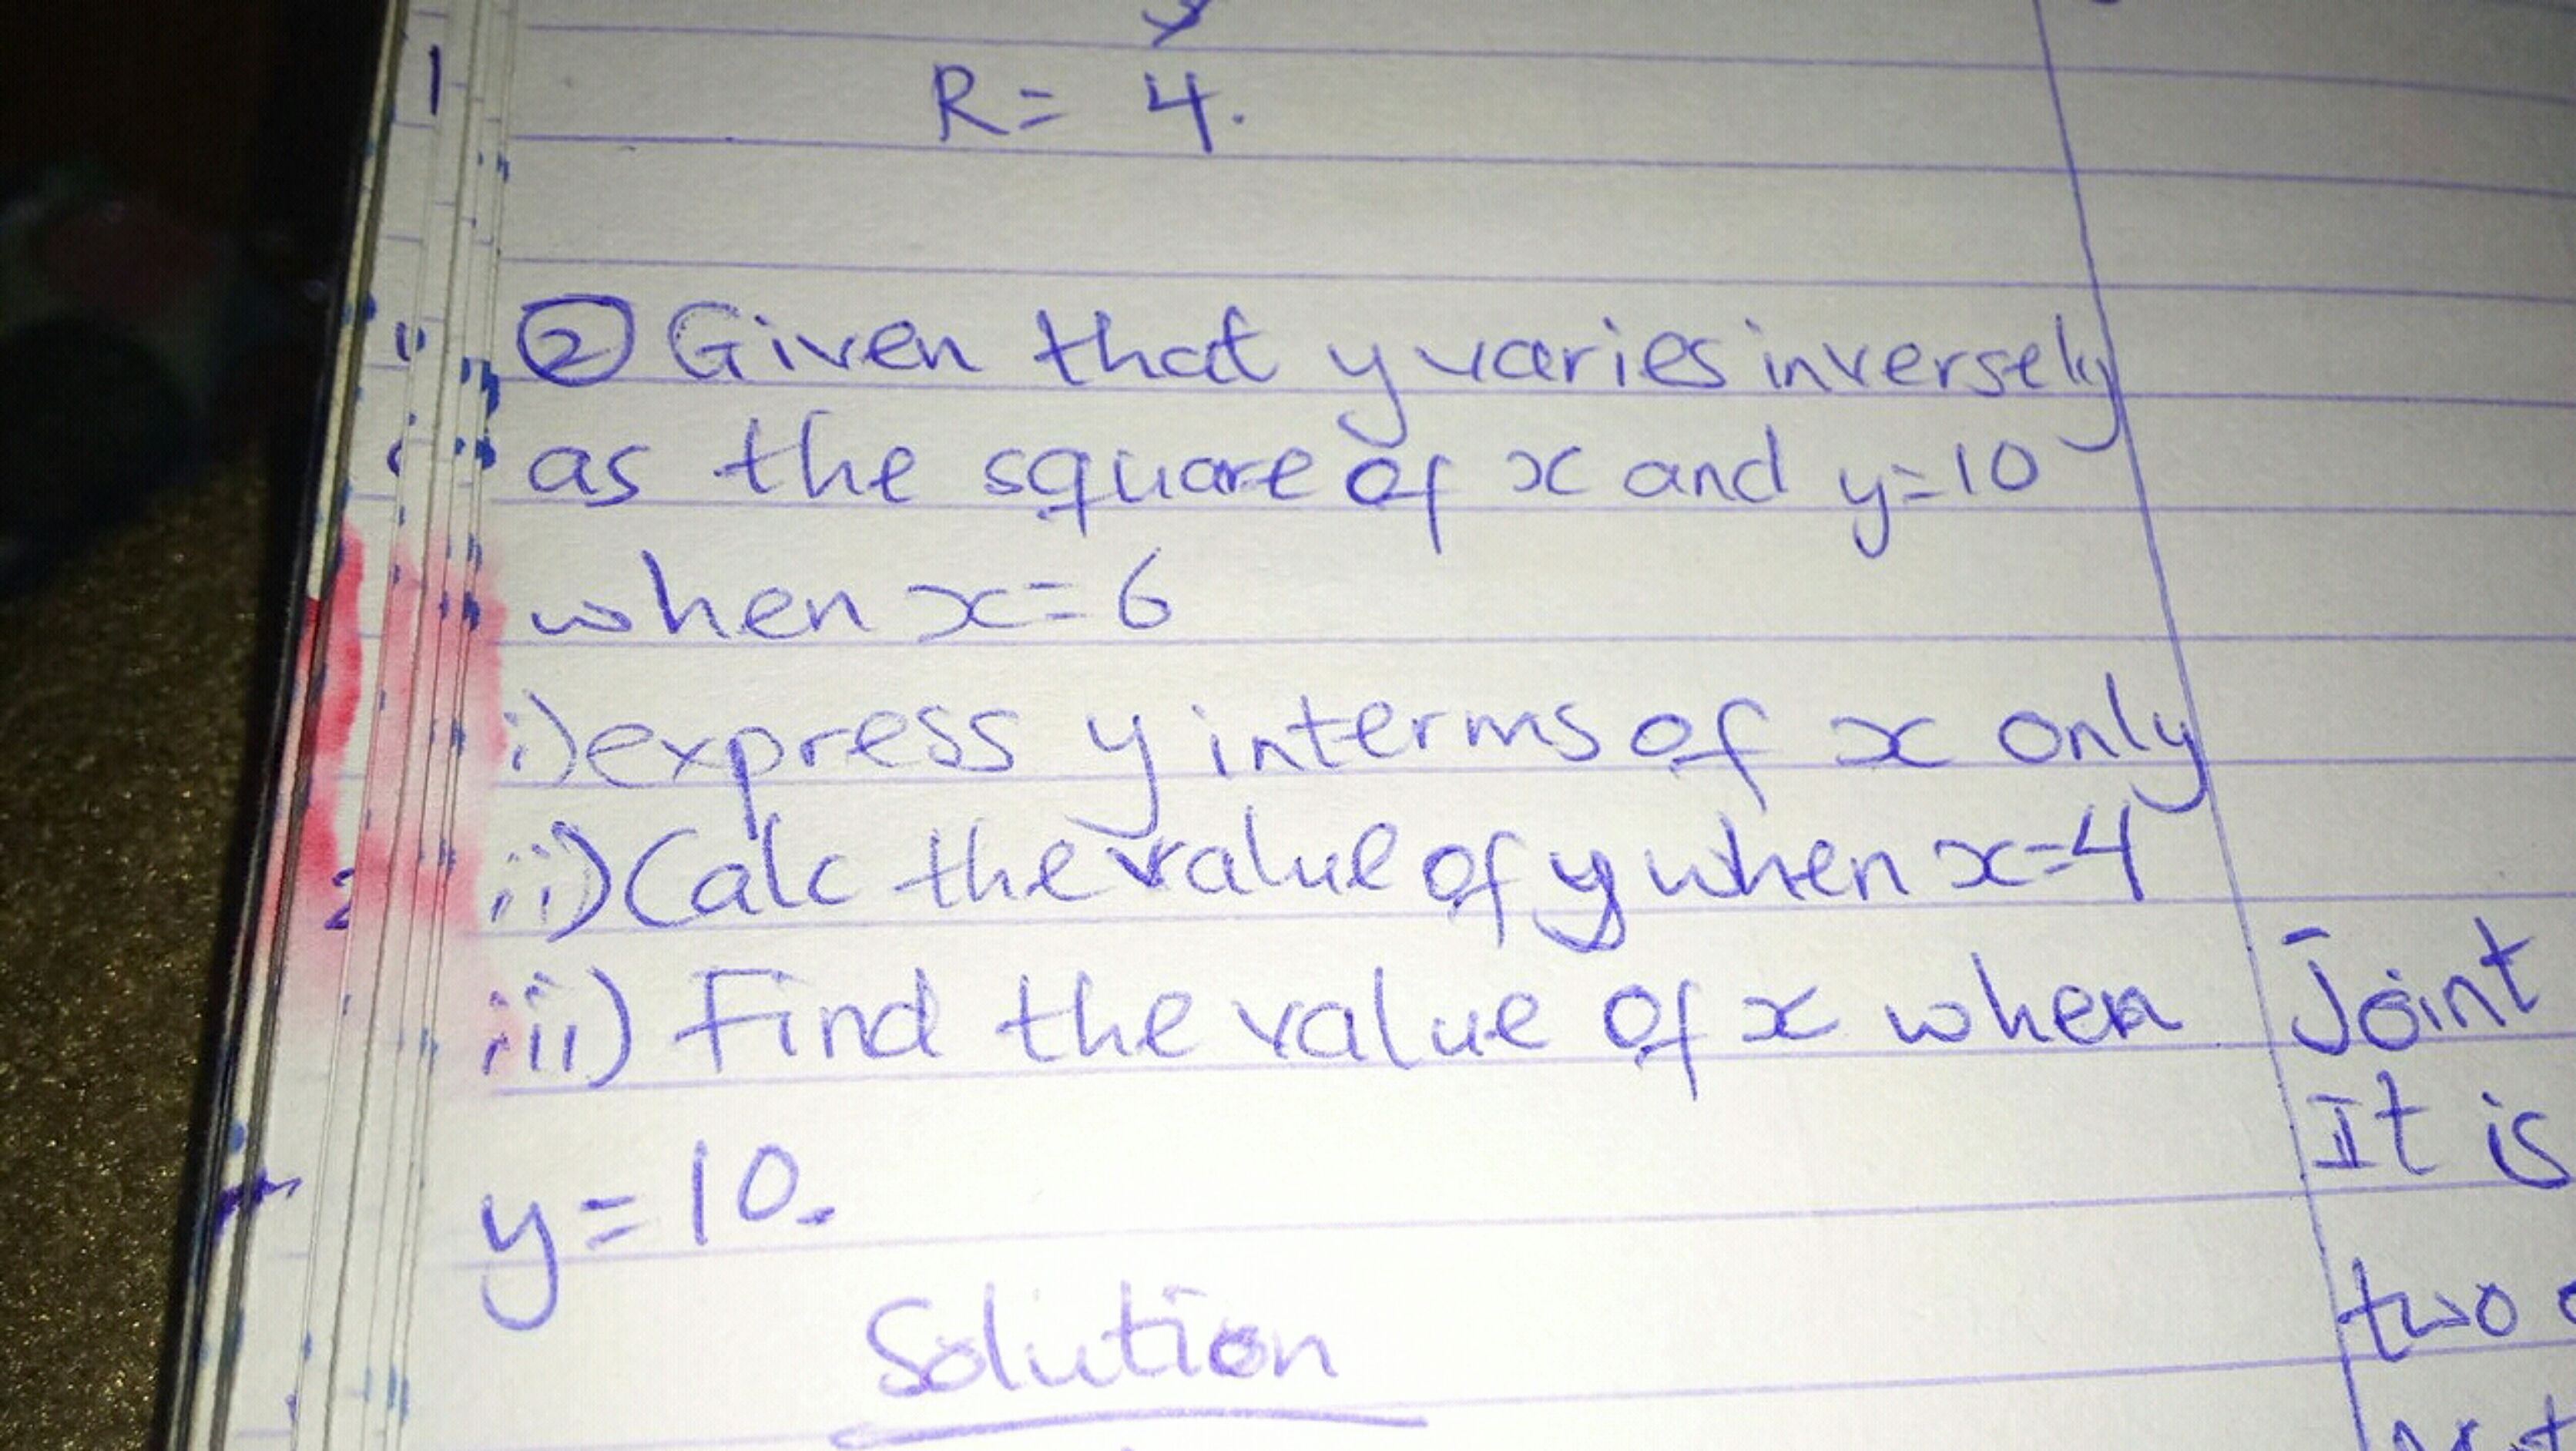 1
R= 4.
② Given that y varies inversely
as the square of x and y=10
when x=6
i) express y interms of x only
ii) Calc the value of y when x=4
2
iii) Find the value of x when
y=10.
Solution
Joint
It is
two